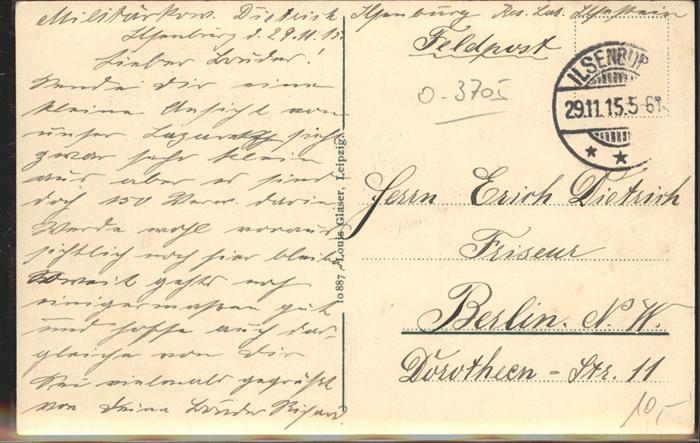 Militärkrkw. Dietrich Ilsenburg Res. Laz. Ilsestein
Ilsenburg d. 29.11.15.
Lieber Bruder!
Sende Dir eine
kleine Ansicht von
unser Lazarett sieht
zwar sehr klein
aus aber es sind
doch 150 Verw. darin
Werde wohl voraus
sichtlich noch hier bleiben
Soweit gehts noch
einigermaßen gut
und hoffe auch das-
gleiche von Dir
Sei vielmals gegrüßt
von Deinem Bruder Richard
10887 Louis Glaser, Leipzig.
Feldpost
0-3705
ILSENBURG
29.11.15.5-6N.
Herrn Erich Dietrich
Friseur
Berlin. N. W.
Dorotheen-Str. 11
10,-